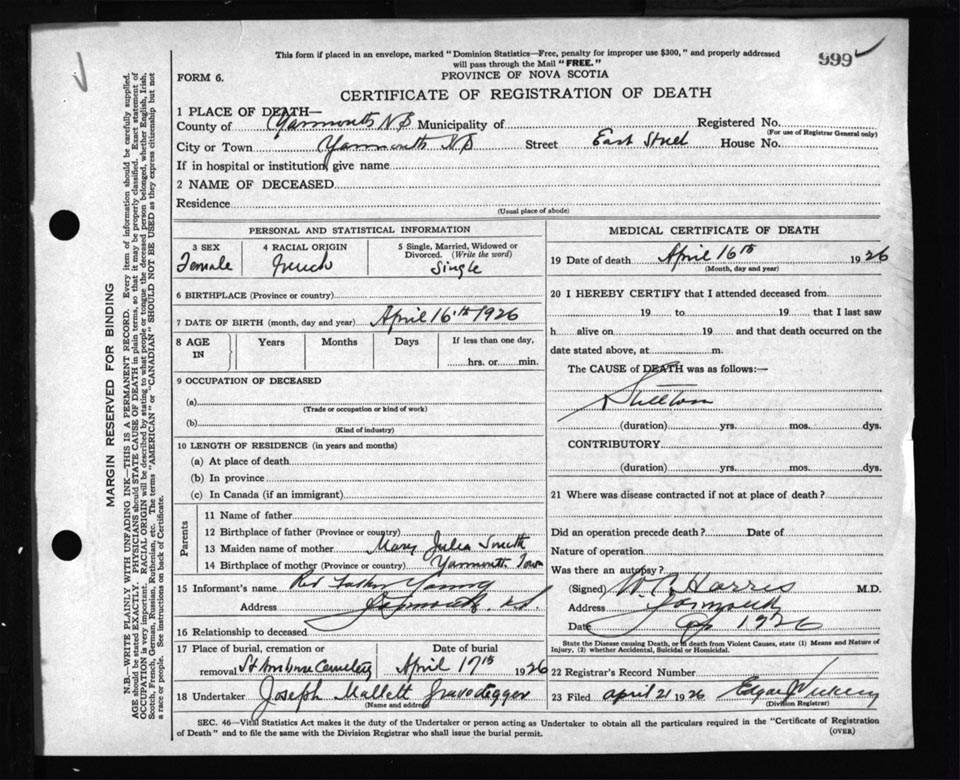 This form if placed in an envelope, marked "Dominion Statistics—Free, penalty for improper use $300," and properly addressed
will pass through the Mail "FREE."
999
FORM 6.
PROVINCE OF NOVA SCOTIA
CERTIFICATE OF REGISTRATION OF DEATH
1 PLACE OF DEATH—
County of Yarmouth NS Municipality of Registered No.
(For use of Registrar General only)
City or Town Yarmouth NS Street East Street House No.
If in hospital or institution, give name
2 NAME OF DECEASED
Residence
(Usual place of abode)
PERSONAL AND STATISTICAL INFORMATION
3 SEX
Female
4 RACIAL ORIGIN
French
5 Single, Married, Widowed or
Divorced. (Write the word)
Single
6 BIRTHPLACE (Province or country)
7 DATE OF BIRTH (month, day and year) April 16th 1926
8 AGE
IN
Years Months Days If less than one day,
hrs. or min.
9 OCCUPATION OF DECEASED
(a)
(Trade or occupation or kind of work)
(b)
(Kind of industry)
10 LENGTH OF RESIDENCE (in years and months)
(a) At place of death
(b) In province
(c) In Canada (if an immigrant)
Parents
11 Name of father
12 Birthplace of father (Province or country)
13 Maiden name of mother Mary Julia Smith
14 Birthplace of mother (Province or country) Yarmouth Town
15 Informant's name Rev Father Young
Address Yarmouth, N.S.
16 Relationship to deceased
17 Place of burial, cremation or
removal St Ambrose Cemetery
Date of burial
April 17th 1926
18 Undertaker Joseph Mallett Gravedegger
(Name and address)
MEDICAL CERTIFICATE OF DEATH
19 Date of death April 16th 1926
(Month, day and year)
20 I HEREBY CERTIFY that I attended deceased from
19 to 19 that I last saw
h alive on 19 and that death occurred on the
date stated above, at m.
The CAUSE of DEATH was as follows:—
Stillborn
(duration) yrs. mos. dys.
CONTRIBUTORY
(duration) yrs. mos. dys.
21 Where was disease contracted if not at place of death?
Did an operation precede death? Date of
Nature of operation
Was there an autopsy?
(Signed) Harris M.D.
Address Yarmouth
Date 1926
State the Disease causing Death, or in death from Violent Causes, state (1) Means and Nature of
Injury, (2) whether Accidental, Suicidal or Homicidal.
22 Registrar's Record Number
23 Filed april 21 1926 Edgar
(Division Registrar)
SEC. 46—Vital Statistics Act makes it the duty of the Undertaker or person acting as Undertaker to obtain all the particulars required in the "Certificate of Registration
of Death" and to file the same with the Division Registrar who shall issue the burial permit.
(OVER)
MARGIN RESERVED FOR BINDING
N.B.—WRITE PLAINLY WITH UNFADING INK—THIS IS A PERMANENT RECORD. Every item of information should be carefully supplied.
AGE should be stated EXACTLY. PHYSICIANS should STATE CAUSE OF DEATH in plain terms, so that it may be properly classified. Exact statement of
OCCUPATION is very important. RACIAL ORIGIN will be described by stating to what people or tongue the deceased person belonged, whether English, Irish,
Scotch, French, German, Russian, Ruthenian, etc. The terms "AMERICAN" or "CANADIAN" SHOULD NOT BE USED as they express citizenship but not
a race or people. See instructions on back of Certificate.